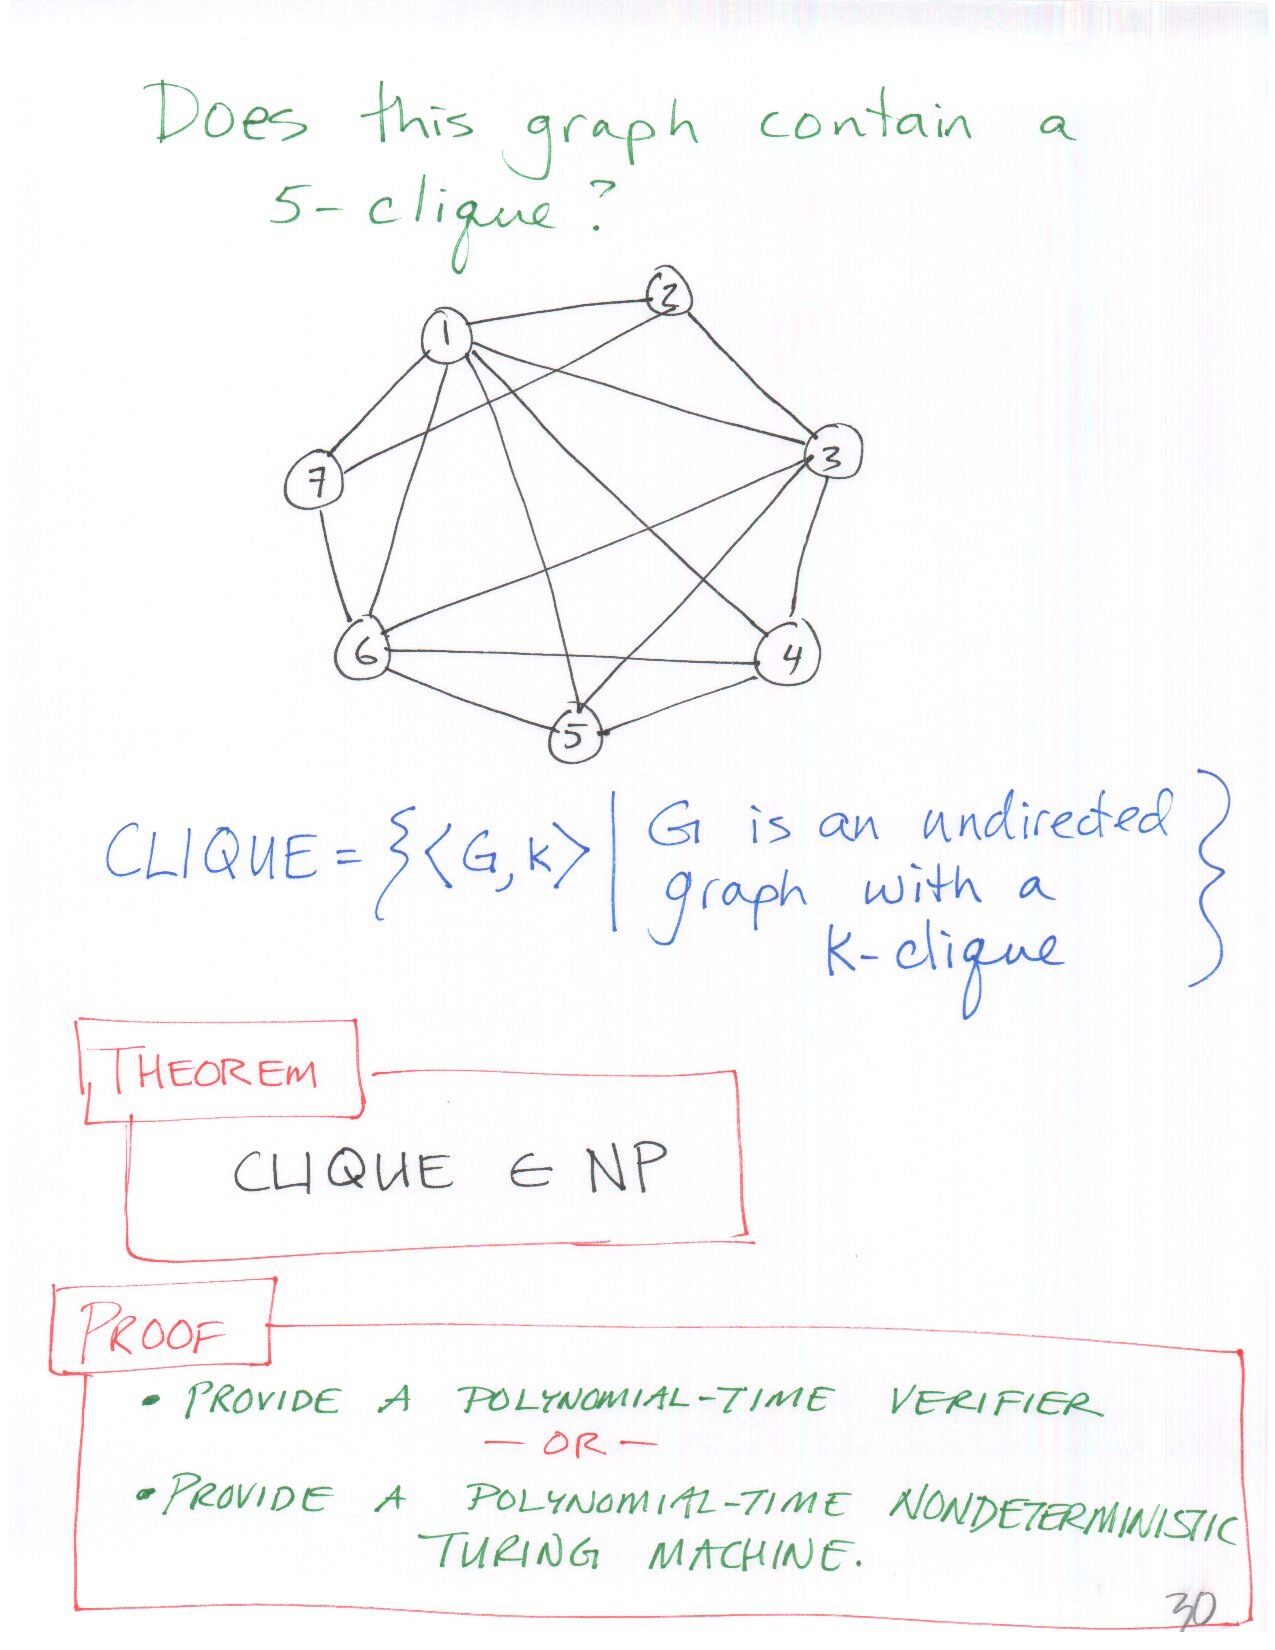 Does this graph contain a
5-clique?
2
1
3
7
6
4
5
CLIQUE = {<G,K> | G is an undirected
graph with a
K-clique }
THEOREM
CLIQUE ∈ NP
PROOF
• PROVIDE A POLYNOMIAL-TIME VERIFIER
— OR —
• PROVIDE A POLYNOMIAL-TIME NONDETERMINISTIC
TURING MACHINE.
30